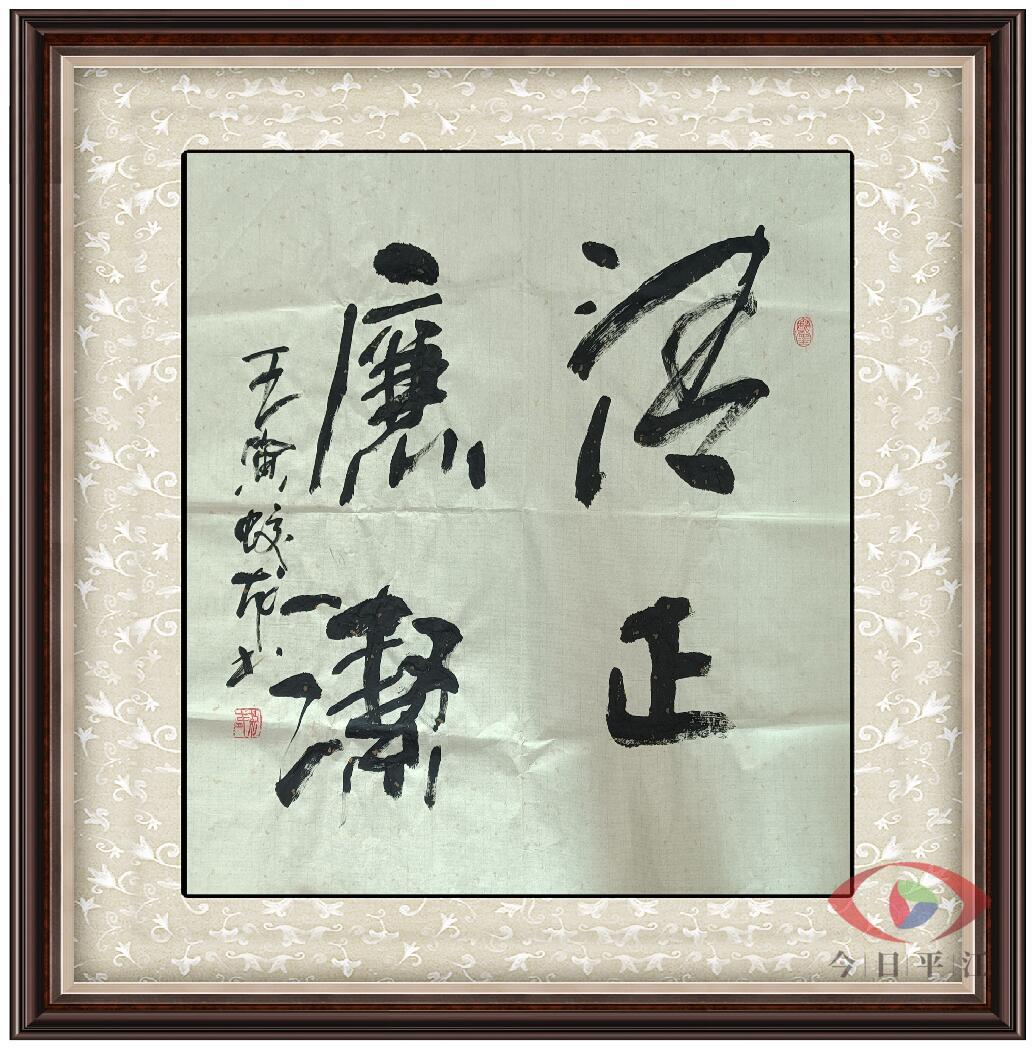 清正
廉潔
壬寅蛟书
今日平江